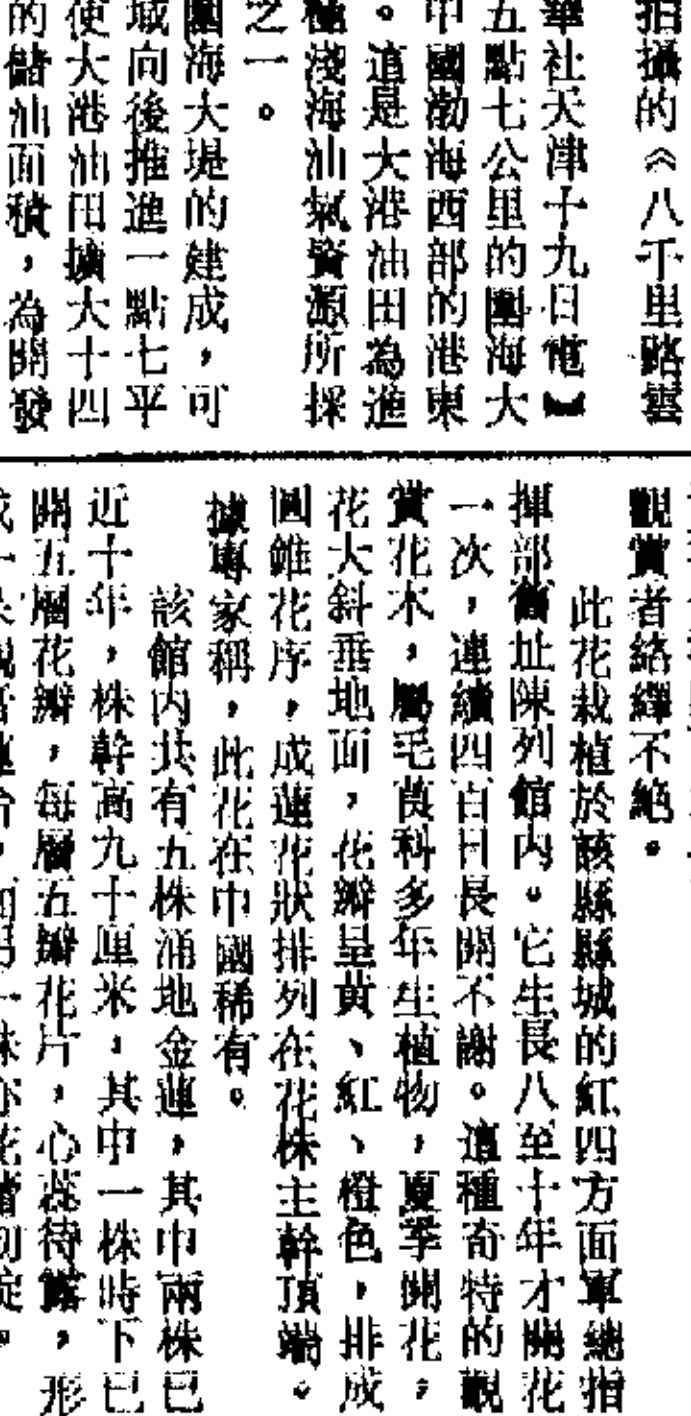 拍攝的《八千里路雲
華社天津十九日電】
五點七公里的圍海大
中國渤海西部的港東
。這是大港油田為進
極淺海油氣資源所採
之一。
圍海大堤的建成，可
域向後推進一點七平
使大港油田擴大十四
的儲油面積，為開發
觀賞者絡繹不絕。
此花栽植於該縣縣城的紅四方面軍總指
揮部舊址陳列館內。它生長八至十年才開花
一次，連續四百日長開不謝。這種奇特的觀
賞花木，屬毛茛科多年生植物，夏季開花，
花大斜垂地面，花瓣呈黃、紅、橙色，排成
圓錐花序，成蓮花狀排列在花株主幹頂端。
據專家稱，此花在中國稀有。
該館內共有五株涌地金蓮，其中兩株已
近十年，株幹高九十厘米，其中一株時下已
開五層花瓣，每層五瓣花片，心蕊待露，形